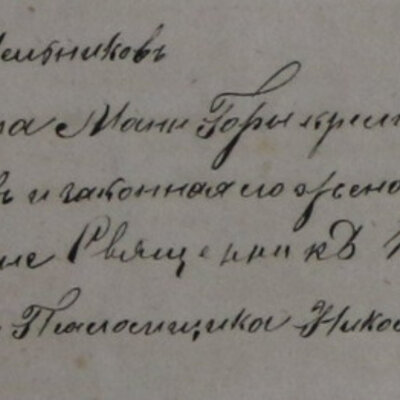 ельниковъ
на Мани Горы крест
ъ и законная его жена
ие Священникъ
Псаломщика Нико